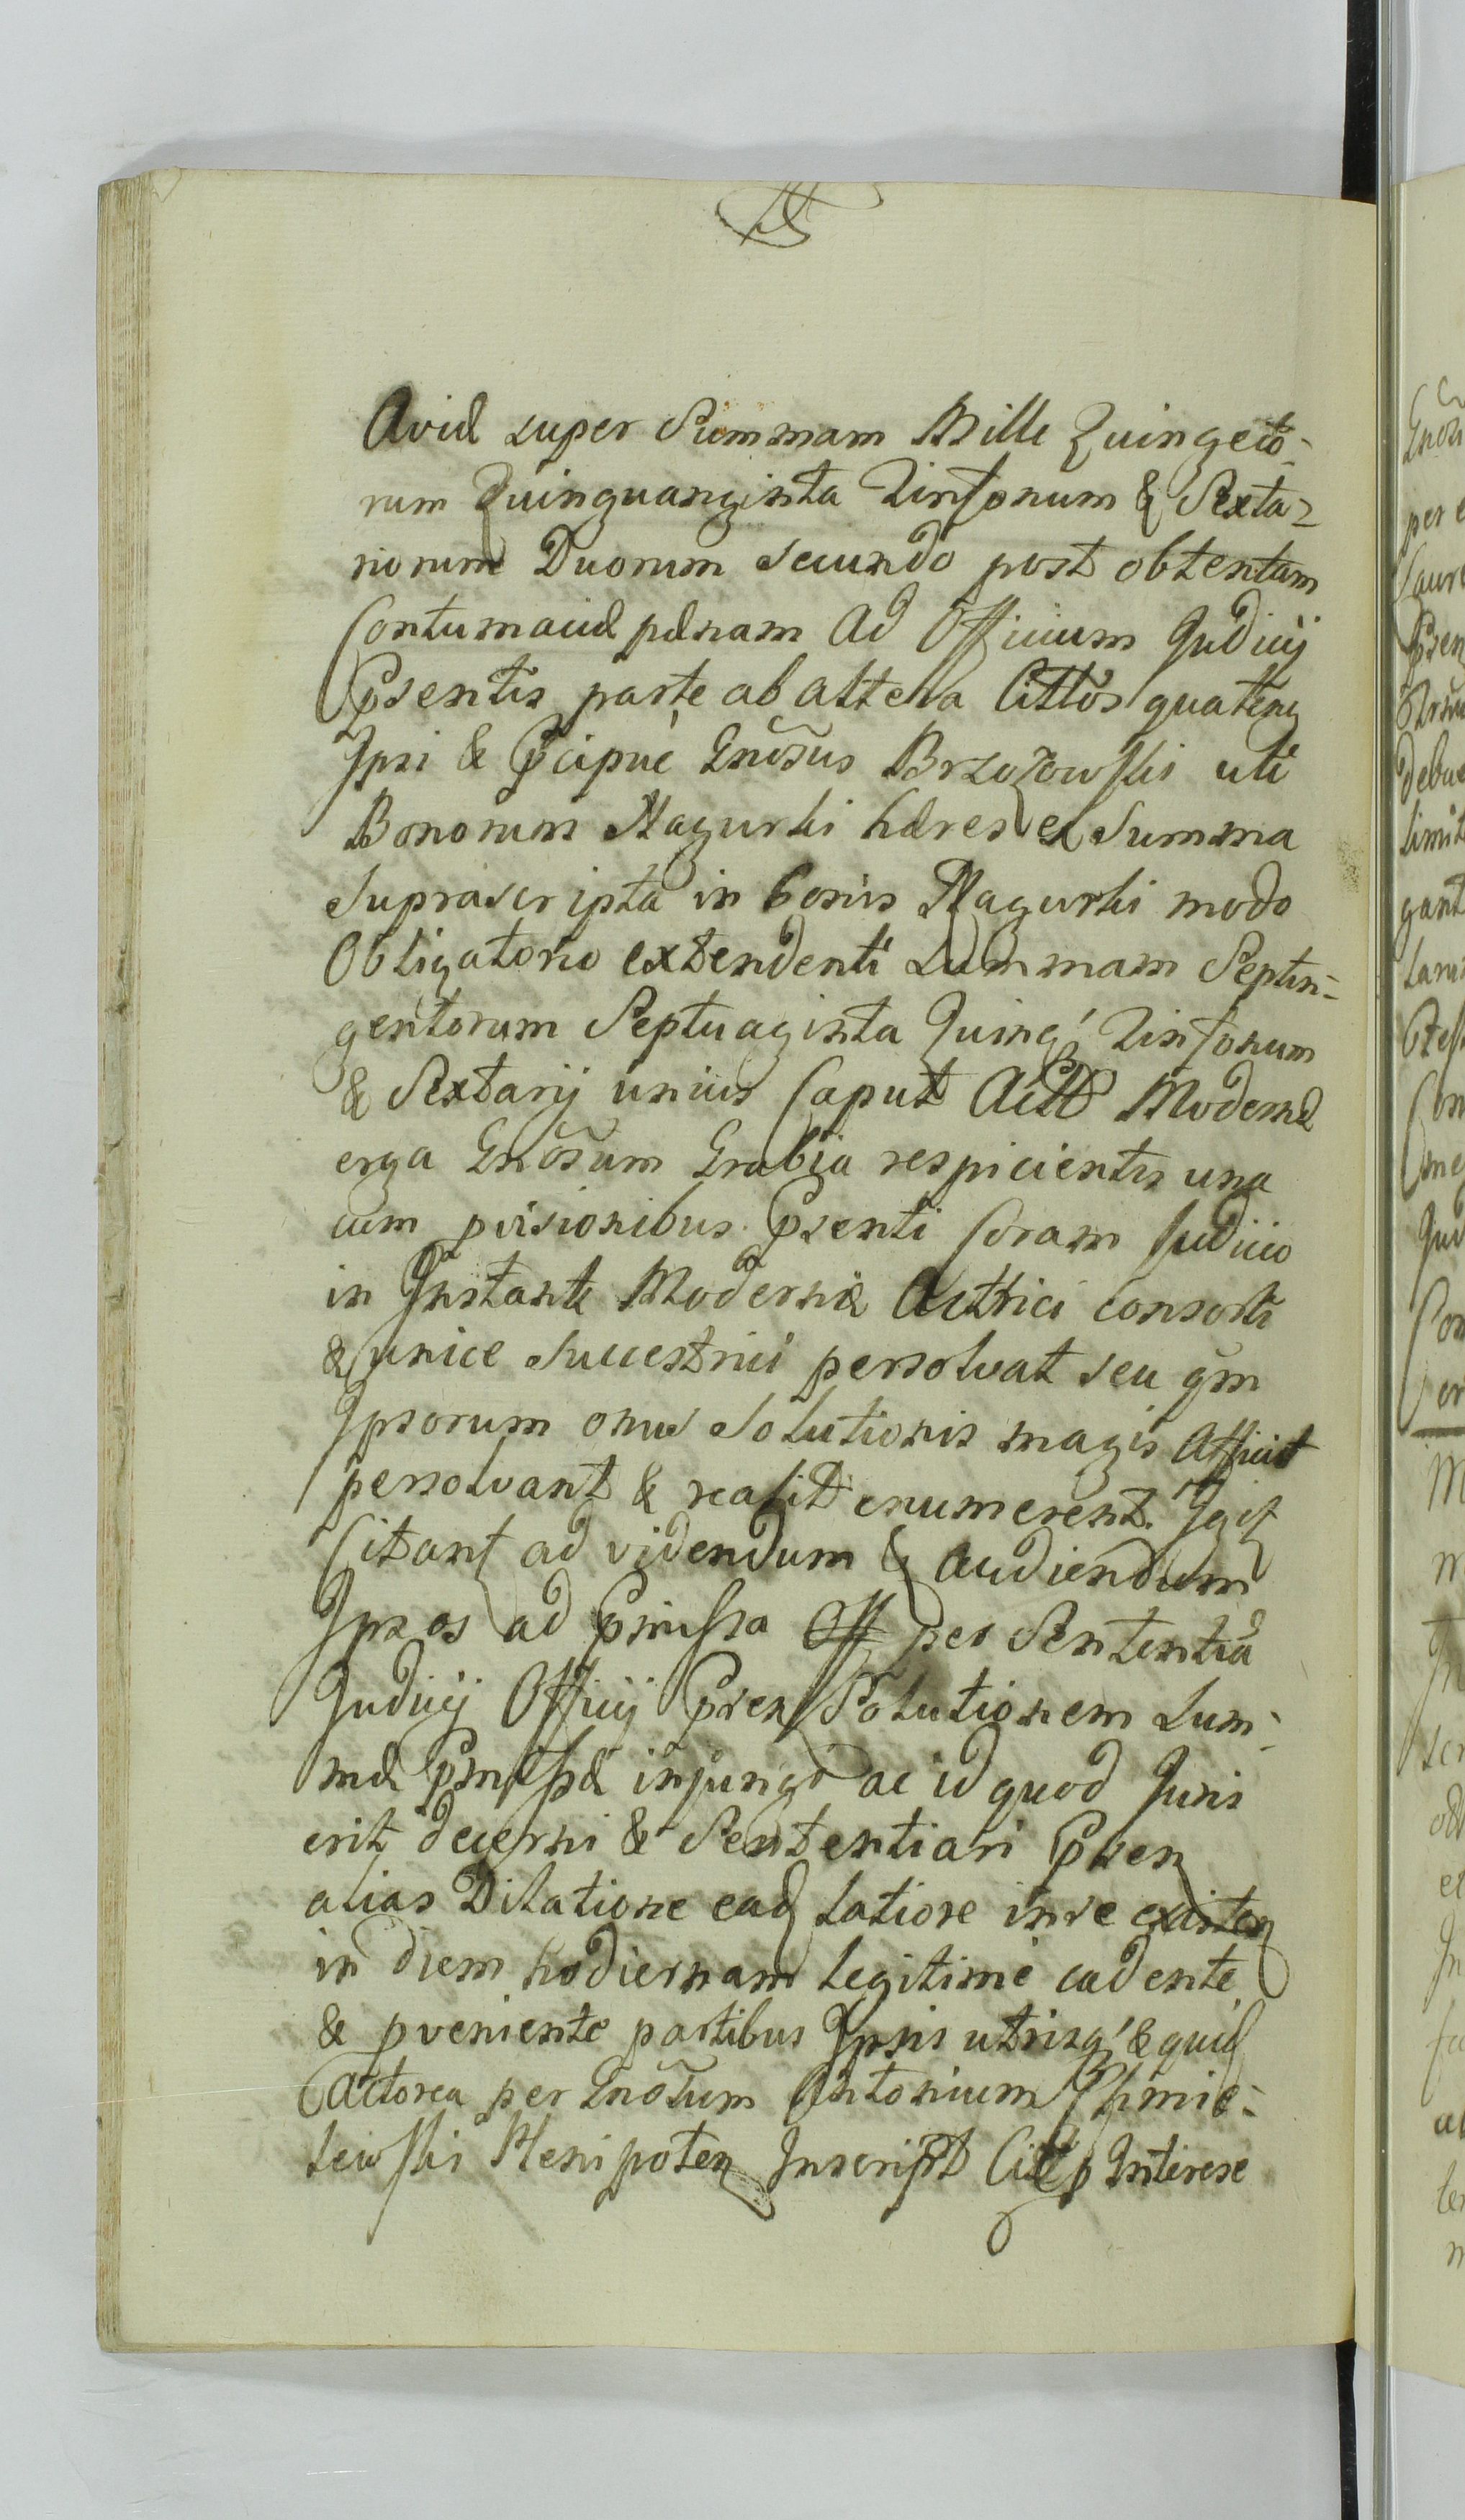 Aviæ super Summam Mille Quingeto-
rum Quinquanginta Tinfonum & Sexta-
riorum Duorum secundo post obtentam
Contumaciæ pænam Ad Officium Judicij
Pntis parte ab altera Cittos quateng
Ipsi & Pcipuè Gnõsus Brzozowski uti
Bonorum Magurki hæres ex Summa
Suprascripta in bonis Magurki modo
Obligatorio extendenti Summam Septin-
gentorum Septuaginta Quinq Tinfonum
& Sextarij unius Caput Modernæ
erga Gnõsum Grabia respicientis una
cum pvisionibus Psenti Coram Judicio
in Instanti Modernæ Actrici Consorti
& unice Succestrici persolvat seu qm
Ipsorum onus Solutionis magis Afficit
persolvant & realit enumerent. Igit
Citant ad videndum & audiendum
Ipsos ad Pmissa per Sententiã
Judicij Officij Psen Solutionem Sum-
mæ Pmissæ injungi ac id quod Juris
erit decerni & Sententiari Psen
alias Dilatione ead latiore in se existen
in diem hodiernam legitimè cadente
& pveniente partibus Ipsis utrisq & quid
Actorea per Gnõsum Antonium Chmie-
lewski Plenipoten Inscript Interese